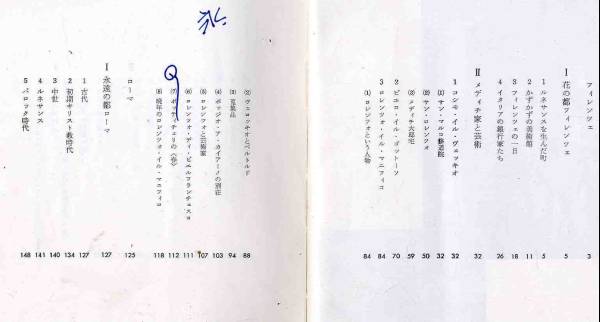 フィレンツェ 3
Ⅰ 花の都フィレンツェ 5
1 ルネサンスを生んだ町 5
2 かずかずの美術館 11
3 フィレンツェの一日 18
4 イタリアの銀行家たち 26
Ⅱ メディチ家と芸術 32
1 コシモ・イル・ヴェッキオ 32
(1) サン・マルコ修道院 32
(2) サン・ロレンツォ 50
(3) メディチ大邸宅 59
2 ピエロ・イル・ゴットーソ 70
3 ロレンツォ・イル・マニフィコ 84
(1) ロレンツォという人物 84
(2) ヴェロッキオとベルトルド 88
(3) 蒐集品 94
(4) ポッジオ・ア・カイアーノの別荘 103
(5) ロレンツォと芸術家 107
(6) ロレンツォ・ディ・ピエルフランチェスコ 111
(7) ボッティチェリの《春》 112
(8) 晩年のロレンツォ・イル・マニフィコ 118
ローマ 125
Ⅰ 永遠の都ローマ 127
1 古代 127
2 初期キリスト教時代 134
3 中世 140
4 ルネサンス 141
5 バロック時代 148